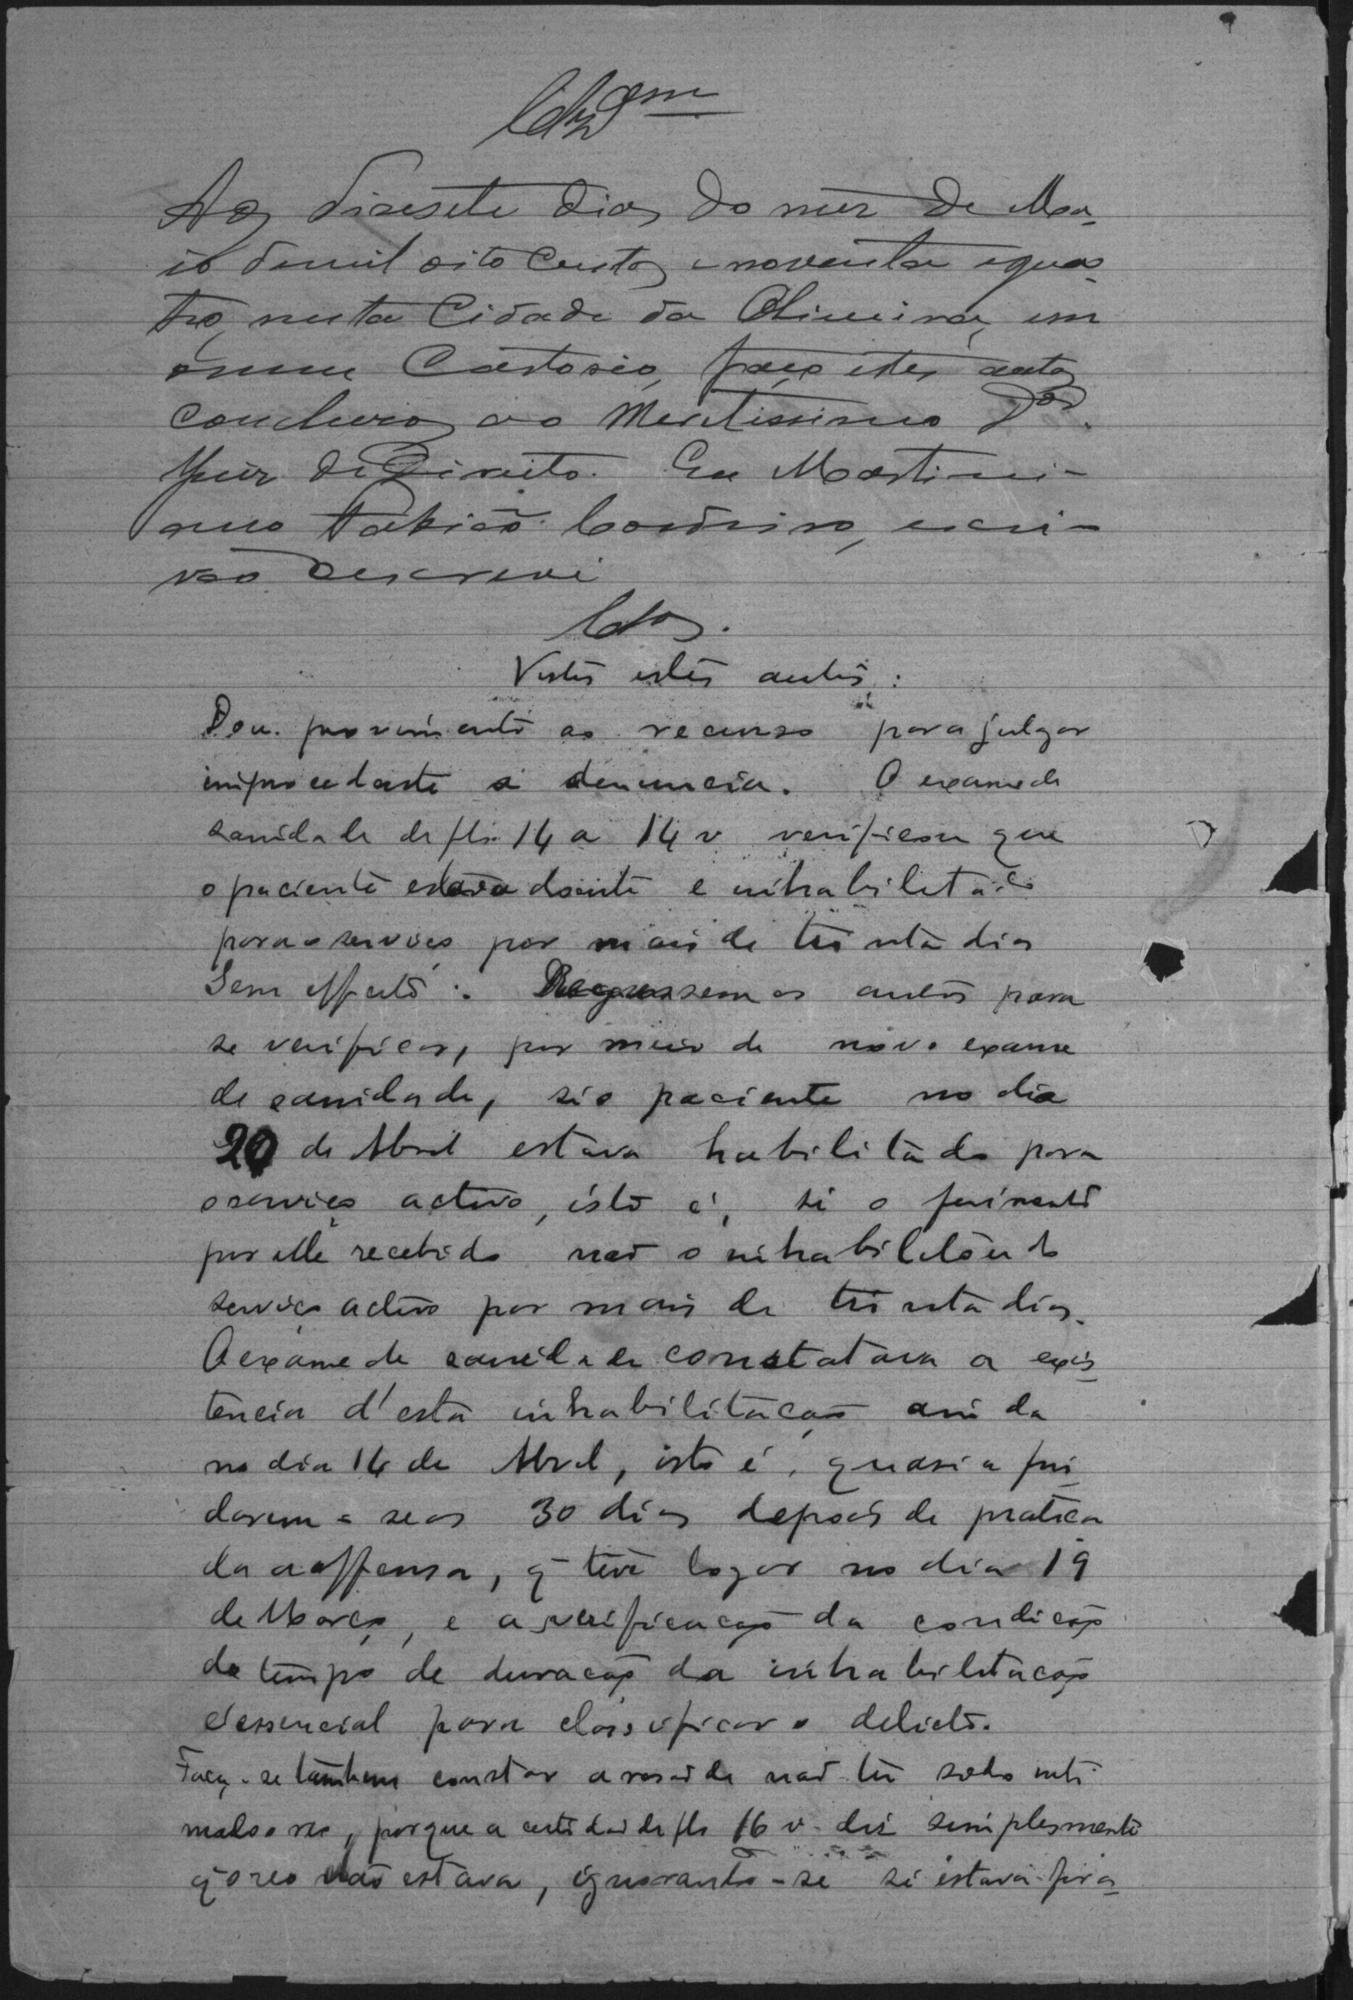 Clsão em
Aos disesete dias do mez de Ma-
io de mil oito Centos e noventa e qua-
tro, nesta Cidade da Oliveira, em
o meu Cartorio, faço estes autos
concluzos ao Meritissimo Dor.
Juiz de Direito. Eu Martini-
ano Cordeiro, escri-
vão o escrevi
Clos.
Vistos estes autos:
Dou provimento ao recurso para julgar
improcedente a denuncia. O exame de
sanidade de fls. 14 a 14 v verificou que
o paciente estava doente e inhabilitado
para o serviço por mais de trinta dias
Sem effeito. Regressem os autos para
se verificar, por meio de novo exame
de sanidade, si o paciente no dia
20 de Abril estava habilitado para
o serviço activo, isto é, si o ferimento
por elle recebido não o inhabilitou do
serviço activo por mais de trinta dias.
O exame de sanidade constatava a exis-
tencia d'esta inhabilitação ainda
no dia 14 de Abril, isto é, quasi a fin-
darem-se os 30 dias depois de pratica-
da a offensa, q̃ teve logar no dia 19
de Março, e a verificação da condição
do tempo de duração da inhabilitação
é essencial para classificar o delicto.
Faça-se tambem constar a rasão de não ter sido inti-
mado o reo, porque a certidão de fls 16 v. diz simplesmente
q̃ o reo não estava, ignorando-se si estava fora